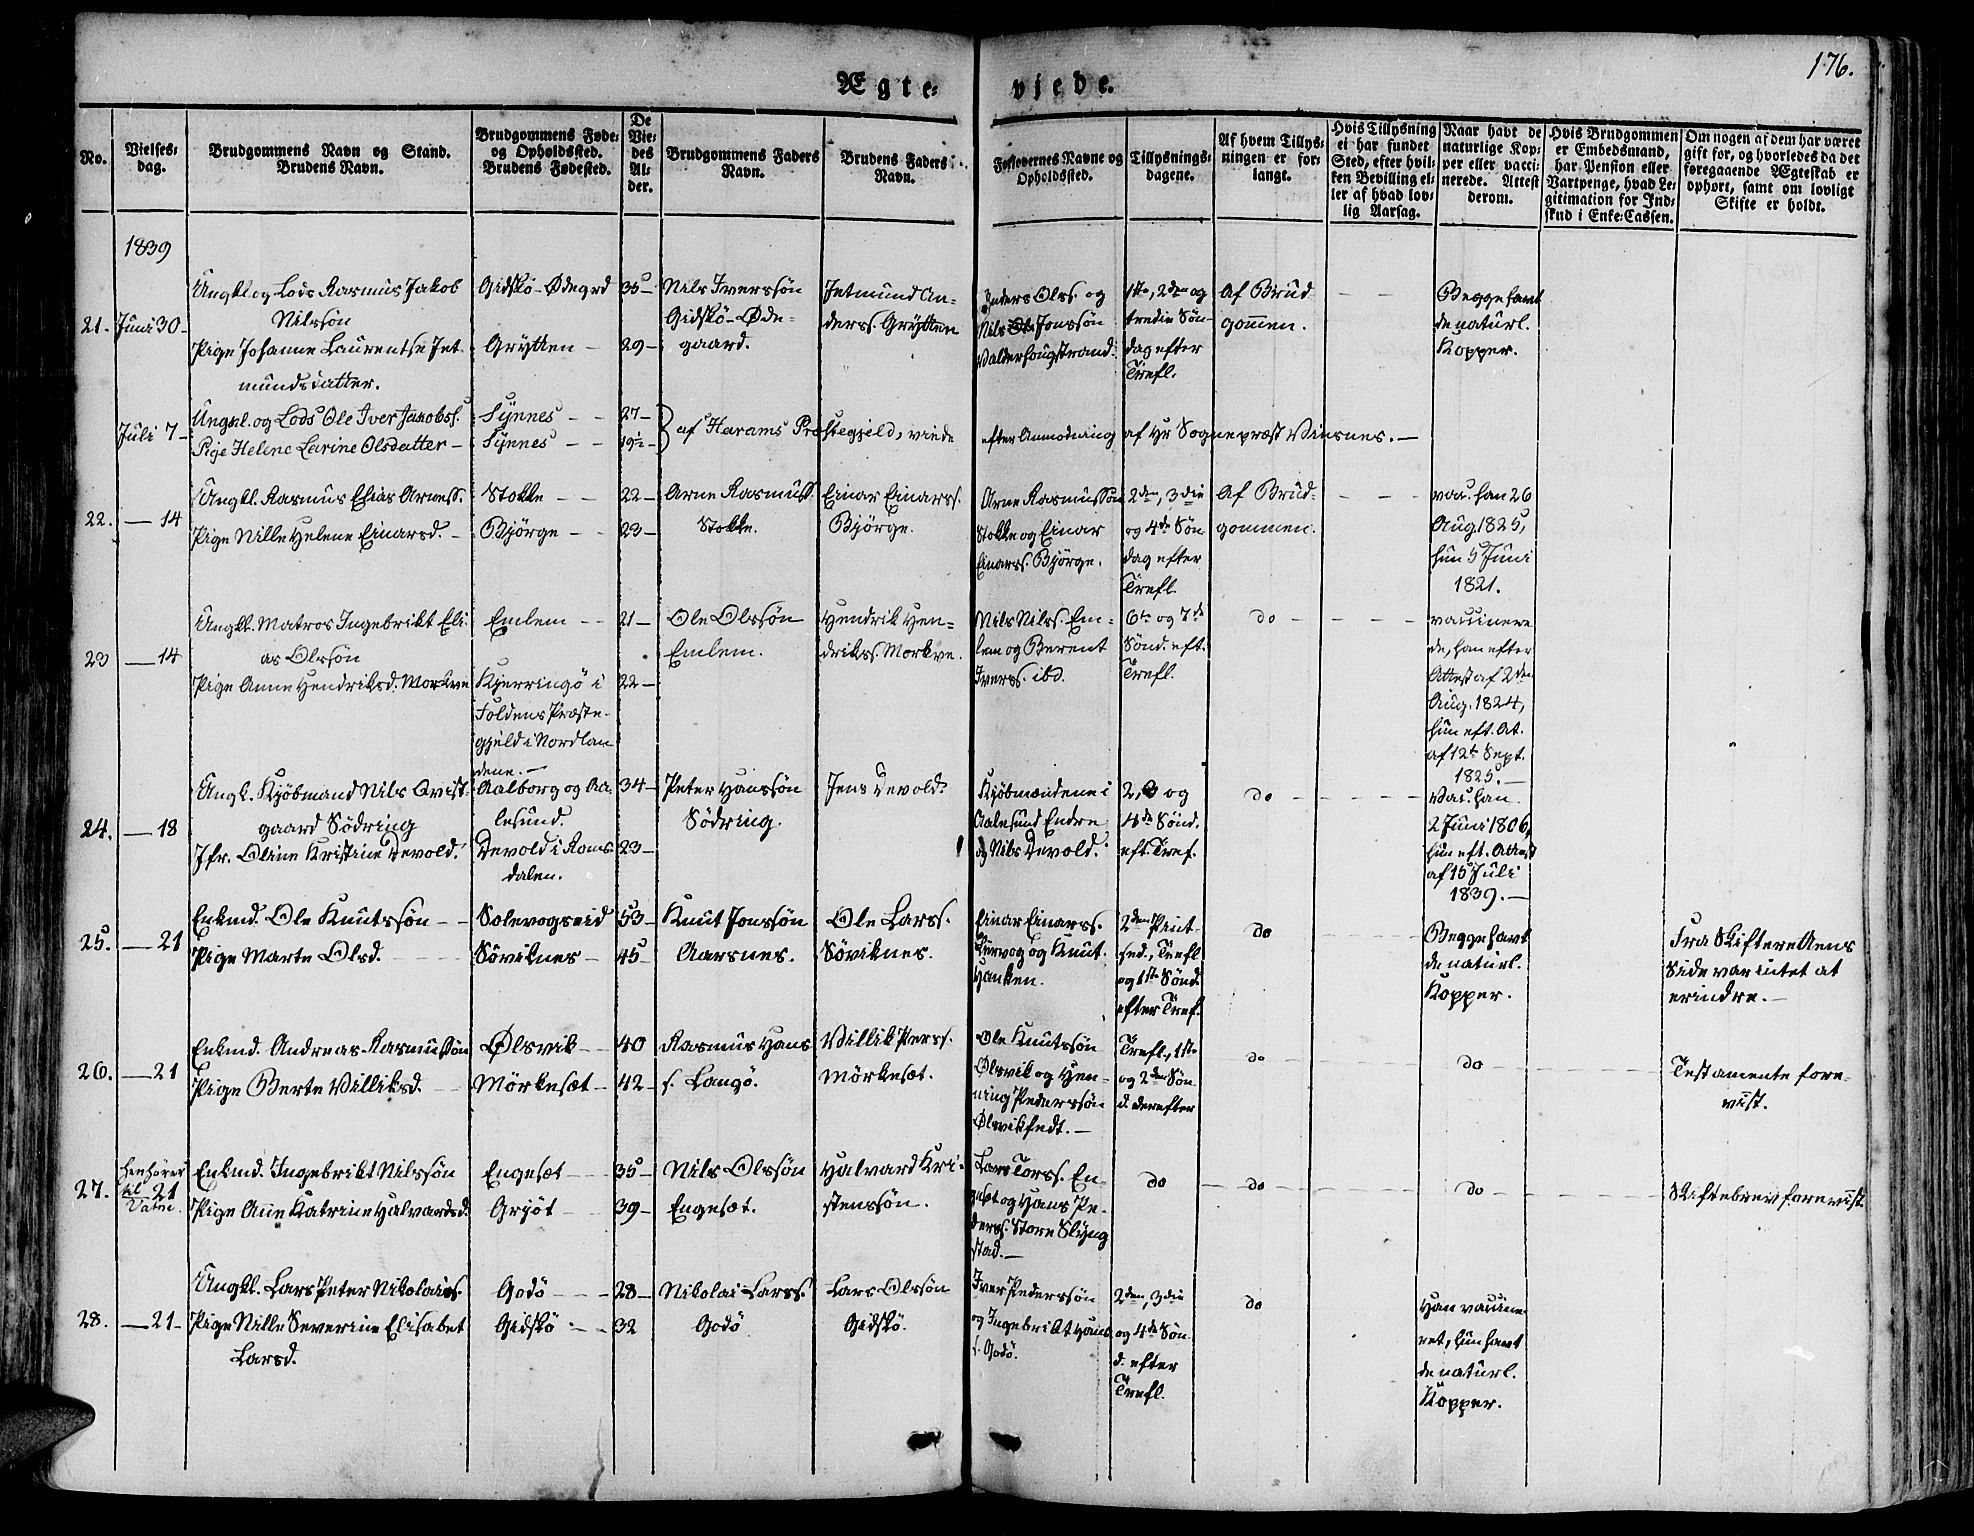 176.
Ægte-
viede.
No.
Vielses-
dag.
Brudgommens Navn og Stand.
Brudens Navn.
Brudgommens Føde-
og Opholdssted.
Brudens Fødested.
De
Vie-
des
Al-
der.
Brudgommens Faders
Navn.
Brudens Faders
Navn.
Forlovernes Navne og
Opholdssted.
Tillysnings-
dagene.
Af hvem Tillys-
ningen er for-
langt.
Hvis Tillysning
ei har fundet
Sted, efter hvil-
ken Bevilling el-
ler af hvad lov-
lig Aarsag.
Naar havt de
naturlige Kop-
per eller vacci-
nerede. Attest
derom.
Hvis Brudgommen
er Embedsmand,
har Pension eller
Vartpenge, hvad Le-
gitimation for Ind-
skud i Enke-Cassen.
Om nogen af dem har været
gift før, og hvorledes da det
foregaaende Ægteskab er
ophørt, samt om lovligt
Skifte er holdt.
1839
21.
Juni 30-
Ungkl. og Lods Rasmus Jakob
Nilssön
Pige Johanne Laurentse Jet-
mundsdatter.
Gidskö-Ødegrd
Grÿtten -
35-
29-
Nils Iverssön
Gidskö-Øde-
gaard.
Jetmund An-
derss. Grÿtten
Anders Olss. og
Nils Jonssön
Valderhougstrand.
1ste, 2den og
tredie Søn-
dag efter
Trefl.
Af Brud
gommen.
Begge havt
de naturl.
Kopper.
Juli 7-
Ungkl. og Lods Ole Iver Jacobss.
Pige Helene Larine Olsdatter -
Sÿnnes - -
Sÿnnes - -
27-
19½-
af Harams Præstegjeld, viede
efter Anmodning af Hr Sognepræst Vinsnes. -
22.
- 14
Ungkl. Rasmus Elias Arness.
Pige Nille Helene Einarsd. -
Stokke - -
Bjørge - -
22-
23-
Arne Rasmuss.
Stokke.
Einar Einarss.
Bjørge.
Arne Rasmussön
Stokke og Einar
Einarss. Bjørge.
2den, 3die
og 4de Søn
dag efter
Trefl
Af Brud-
gommen.
vac. han 26
Aug. 1825,
hun 5 Juni
1821.
23
- 14
Ungkl. Matros Ingebrikt Eli-
as Olssön
Pige Anne Hendriksd. Morkve
Emlem - -
Kjerringö i
Foldens Præste-
gjeld i Nordlan-
dene. -
21-
22-
Ole Olssön
Emlem.
Hendrik Hen-
drikss. Morkve.
Nils Nilss. Em-
lem og Berent
Iverss. ibd.
6te og 7de
Sönd. eft.
Trefl.
do
vaccinere
de, han efter
Attest af 2den
Aug. 1824,
hun eft. At.
af 12te Sept.
1825. -
24.
- 18
Ungk. Kjöbmand Nils Qvist-
gaard Södring
Jfr. Oline Kristine Devold.
Aalborg og Aa-
lesund.
Devold i Roms-
dalen.
34-
23-
Peter Hanssön
Södring.
Jens Devold.
Kjöbmændene i
Aalesund Endre
og Nils Devold.
2, 3 og
4de Sönd.
eft. Tref.
do
Vac. han
2 Juni 1806,
hun eft. Attest
af 15 Juli
1839. -
25.
- 21
Enkmd. Ole Knutssön - -
Pige Marte Olsd. -
Solevogseid
Söviknes -
53-
45-
Knut Jonssön
Aarsnes.
Ole Larss.
Söviknes.
Einar Einarss.
og Knut
Hanken.
2den Pint-
sed., Trefl
og 1ste Sönd.
efter Tref.
do
Begge havt
de naturl.
Kopper.
Fra Skifterettens
Side var intet at
erindre. -
26.
- 21
Enkmd. Andreas Rasmussön
Pige Berte Villiksd. -
Ølsvik -
Mörkesæt -
40
42-
Rasmus Hans
s. Langö.
Villik Perss.
Mörkesæt.
Ole Knutssön
Ølsvik og Hen-
ning Pederssön
Ølsvikfedt. -
Trefl., 1ste
og 2den Søn
d. derefter
do
do
Testamente fore-
vist.
27.
henhörer
til
- 21
Vatne.
Enkmd. Ingebrikt Nilssön
Pige Ane Katrine Halvardsd.
Engesæt - -
Grjöt - -
35-
39-
Nils Olssön
Engesæt.
Halvard Kri-
stenssön.
Lars Torss. En-
gesæt og Hans Pe-
derss. Store Slÿng
stad. -
do
do
do
Skiftebrev forevist.
28.
- 21-
Ungkl. Lars Peter Nikolaiss.
Pige Nille Severine Elisabet
Larsd.
Godö - -
Gidskö - -
28-
32
Nikolai Larss.
Godö
Lars Olssön
Gidskö.
Iver Pederssön
og Ingebrikt Hans
s. Godö.
2den, 3die
og 4de Søn
d. efter
Trefl.
do
Han vaccine-
ret, hun havt
de naturl.
Kopper.